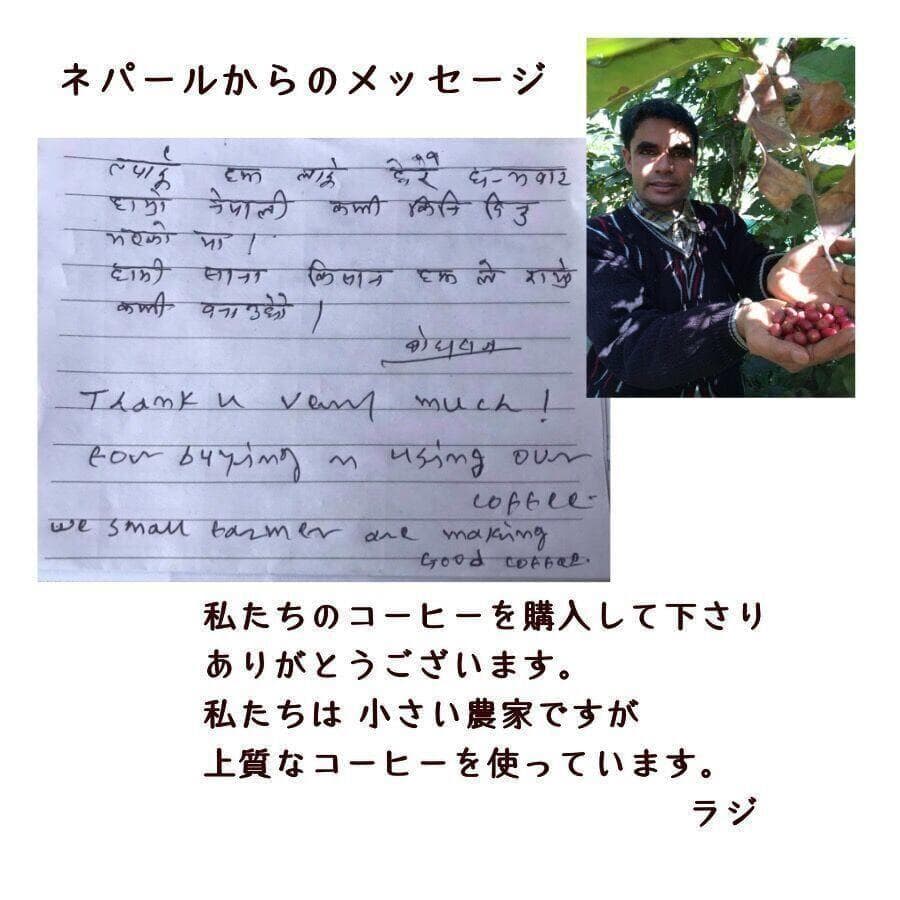 ネパールからのメッセージ
तपाईं हरू लाई धेरै धन्यवाद
हाम्रो नेपाली कफी किनि दिनु
भएको मा ।
हामी साना किसान हरू ले राम्रो
कफी बनाउछौ ।
Thank u very much !
for buying n using our
coffee.
we small farmer are making
Good coffee.
私たちのコーヒーを購入して下さり
ありがとうございます。
私たちは 小さい農家ですが
上質なコーヒーを使っています。
ラジ